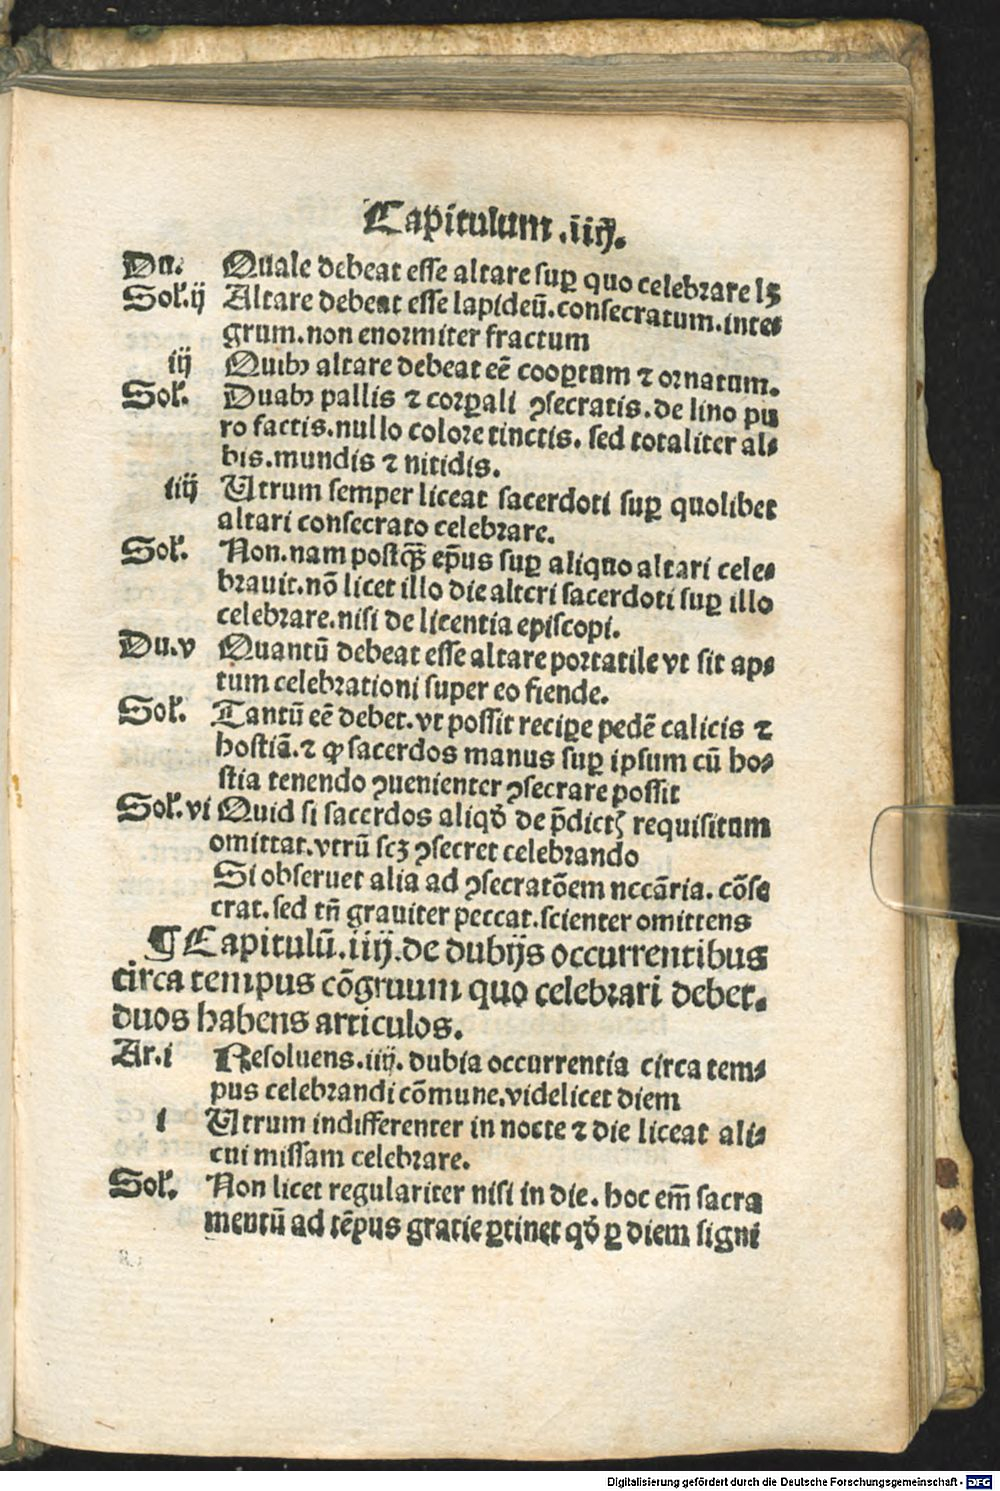 Capitulum .iiij.
Du. Quale debeat esse altare suꝑ quo celebrare lꝫ
Sol̓.ij Altare debeat esse lapideū.consecratum.inte⸗
grum.non enormiter fractum
iij Quibꝰ altare debeat eē cooꝑtum ⁊ ornatum.
Sol̓. Duabꝰ pallis ⁊ corꝑali ꝯsecratis.de lino pu
ro factis.nullo colore tinctis. sed totaliter al⸗
bis.mundis ⁊ nitidis.
iiij Utrum semper liceat sacerdoti suꝑ quolibet
altari consecrato celebrare.
Sol̓. Non.nam postꝙ̄ ep̄us suꝑ aliquo altari cele⸗
brauit.nō licet illo die alteri sacerdoti suꝑ illo
celebrare.nisi de licentia episcopi.
Du.v Quantū debeat esse altare portatile vt sit ap⸗
tum celebrationi super eo fiende.
Sol̓. Tantū eē debet.vt possit reciꝑe pedē calicis ⁊
hostiā.⁊ ꝙ sacerdos manus suꝑ ipsum cū ho⸗
stia tenendo ꝯuenienter ꝯsecrare possit
Sol̓.vi Quid si sacerdos aliqđ de p̄dictꝭ requisitum
omittat.vtrū scꝫ ꝯsecret celebrando
Si obseruet alia ad ꝯsecratōem nccāria. cōse
crat.sed tn̄ grauiter peccat.scienter omittens
¶ Capitulū.iiij.de dubijs occurrentibus
circa tempus cōgruum quo celebrari debet.
duos habens articulos.
Ar.i Resoluens.iiij. dubia occurrentia circa tem⸗
pus celebrandi cōmune.videlicet diem
i Utrum indifferenter in nocte ⁊ die liceat ali⸗
cui missam celebrare.
Sol̓. Non licet regulariter nisi in die. hoc em̄ sacra
mentū ad tēpus gratie ꝑtinet qđ ꝑ diem signi
Digitalisierung gefördert durch die Deutsche Forschungsgemeinschaft - DFG